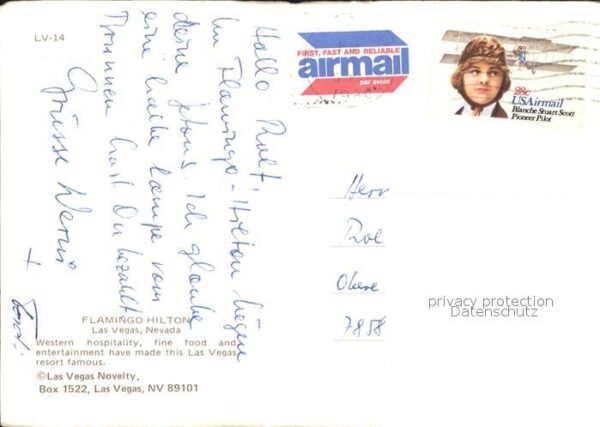 LV-14
FIRST, FAST AND RELIABLE
airmail
par avion
28c
USAirmail
Blanche Stuart Scott
Pioneer Pilot
Hallo
Im Flamingo-Hilton liegen
deine Jetons. Ich glaube
eine halbe Lampe vom
Brunnen hast Du bezahlt
Grüsse
+
Herr
Obere
7858
privacy protection
Datenschutz
FLAMINGO HILTON
Las Vegas, Nevada
Western hospitality, fine food and
entertainment have made this Las Vegas
resort famous.
©Las Vegas Novelty,
Box 1522, Las Vegas, NV 89101